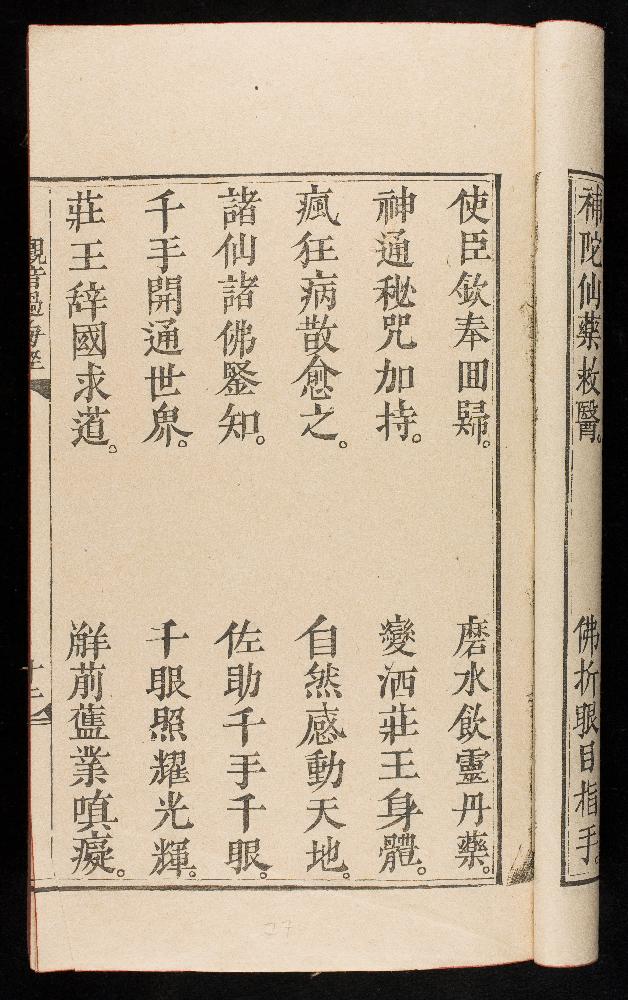 補陀仙藥救醫。 佛折眼目指手。
使臣欽奉回歸。 磨水飲靈丹藥。
神通秘咒加持。 變洒莊王身體。
瘋狂病散愈之。 自然感動天地。
諸仙諸佛鋻知。 佐助千手千眼。
千手開通世界。 千眼照耀光輝。
莊王辞國求道。 觧前舊業嗔癡。
觀音過海經
27